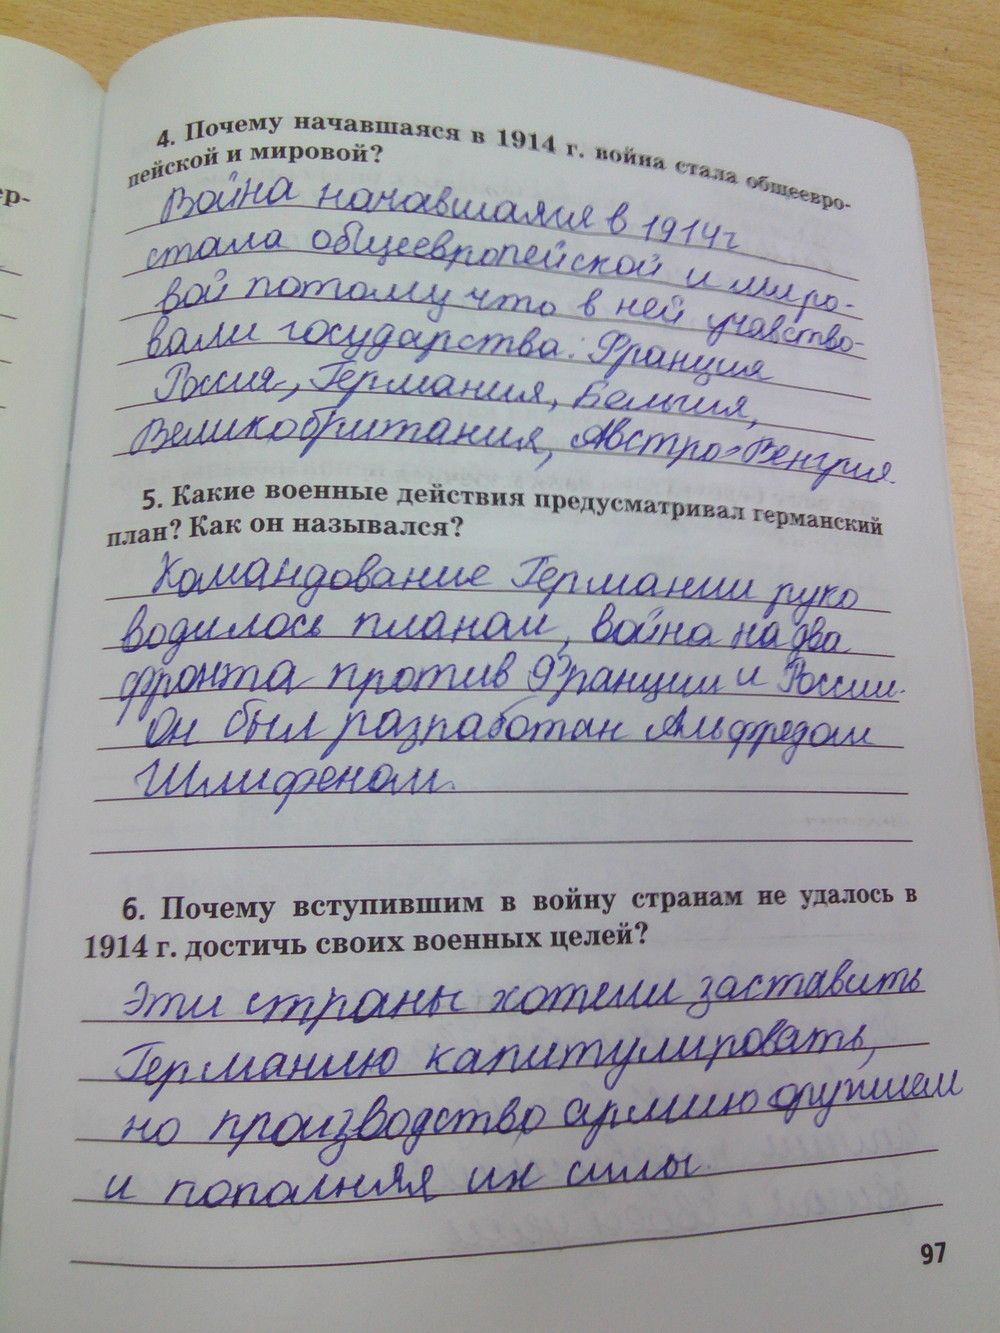 4. Почему начавшаяся в 1914 г. война стала общеевро-
пейской и мировой?
ер-
Война начавшаяся в 1914г
стала общеевропейской и миро-
вой потому что в ней учавство-
вали государства: Франция
Россия, Германия, Бельгия,
Великобритания, Австро-Венгрия.
5. Какие военные действия предусматривал германский
план? Как он назывался?
Командование Германии руко
водилось планом, война на два
фронта против Франции и России.
Он был разработан Альфредом
Шлифеном.
6. Почему вступившим в войну странам не удалось в
1914 г. достичь своих военных целей?
Эти страны хотели заставить
Германию капитулировать,
но производство армию оружием
и пополняя их силы.
97